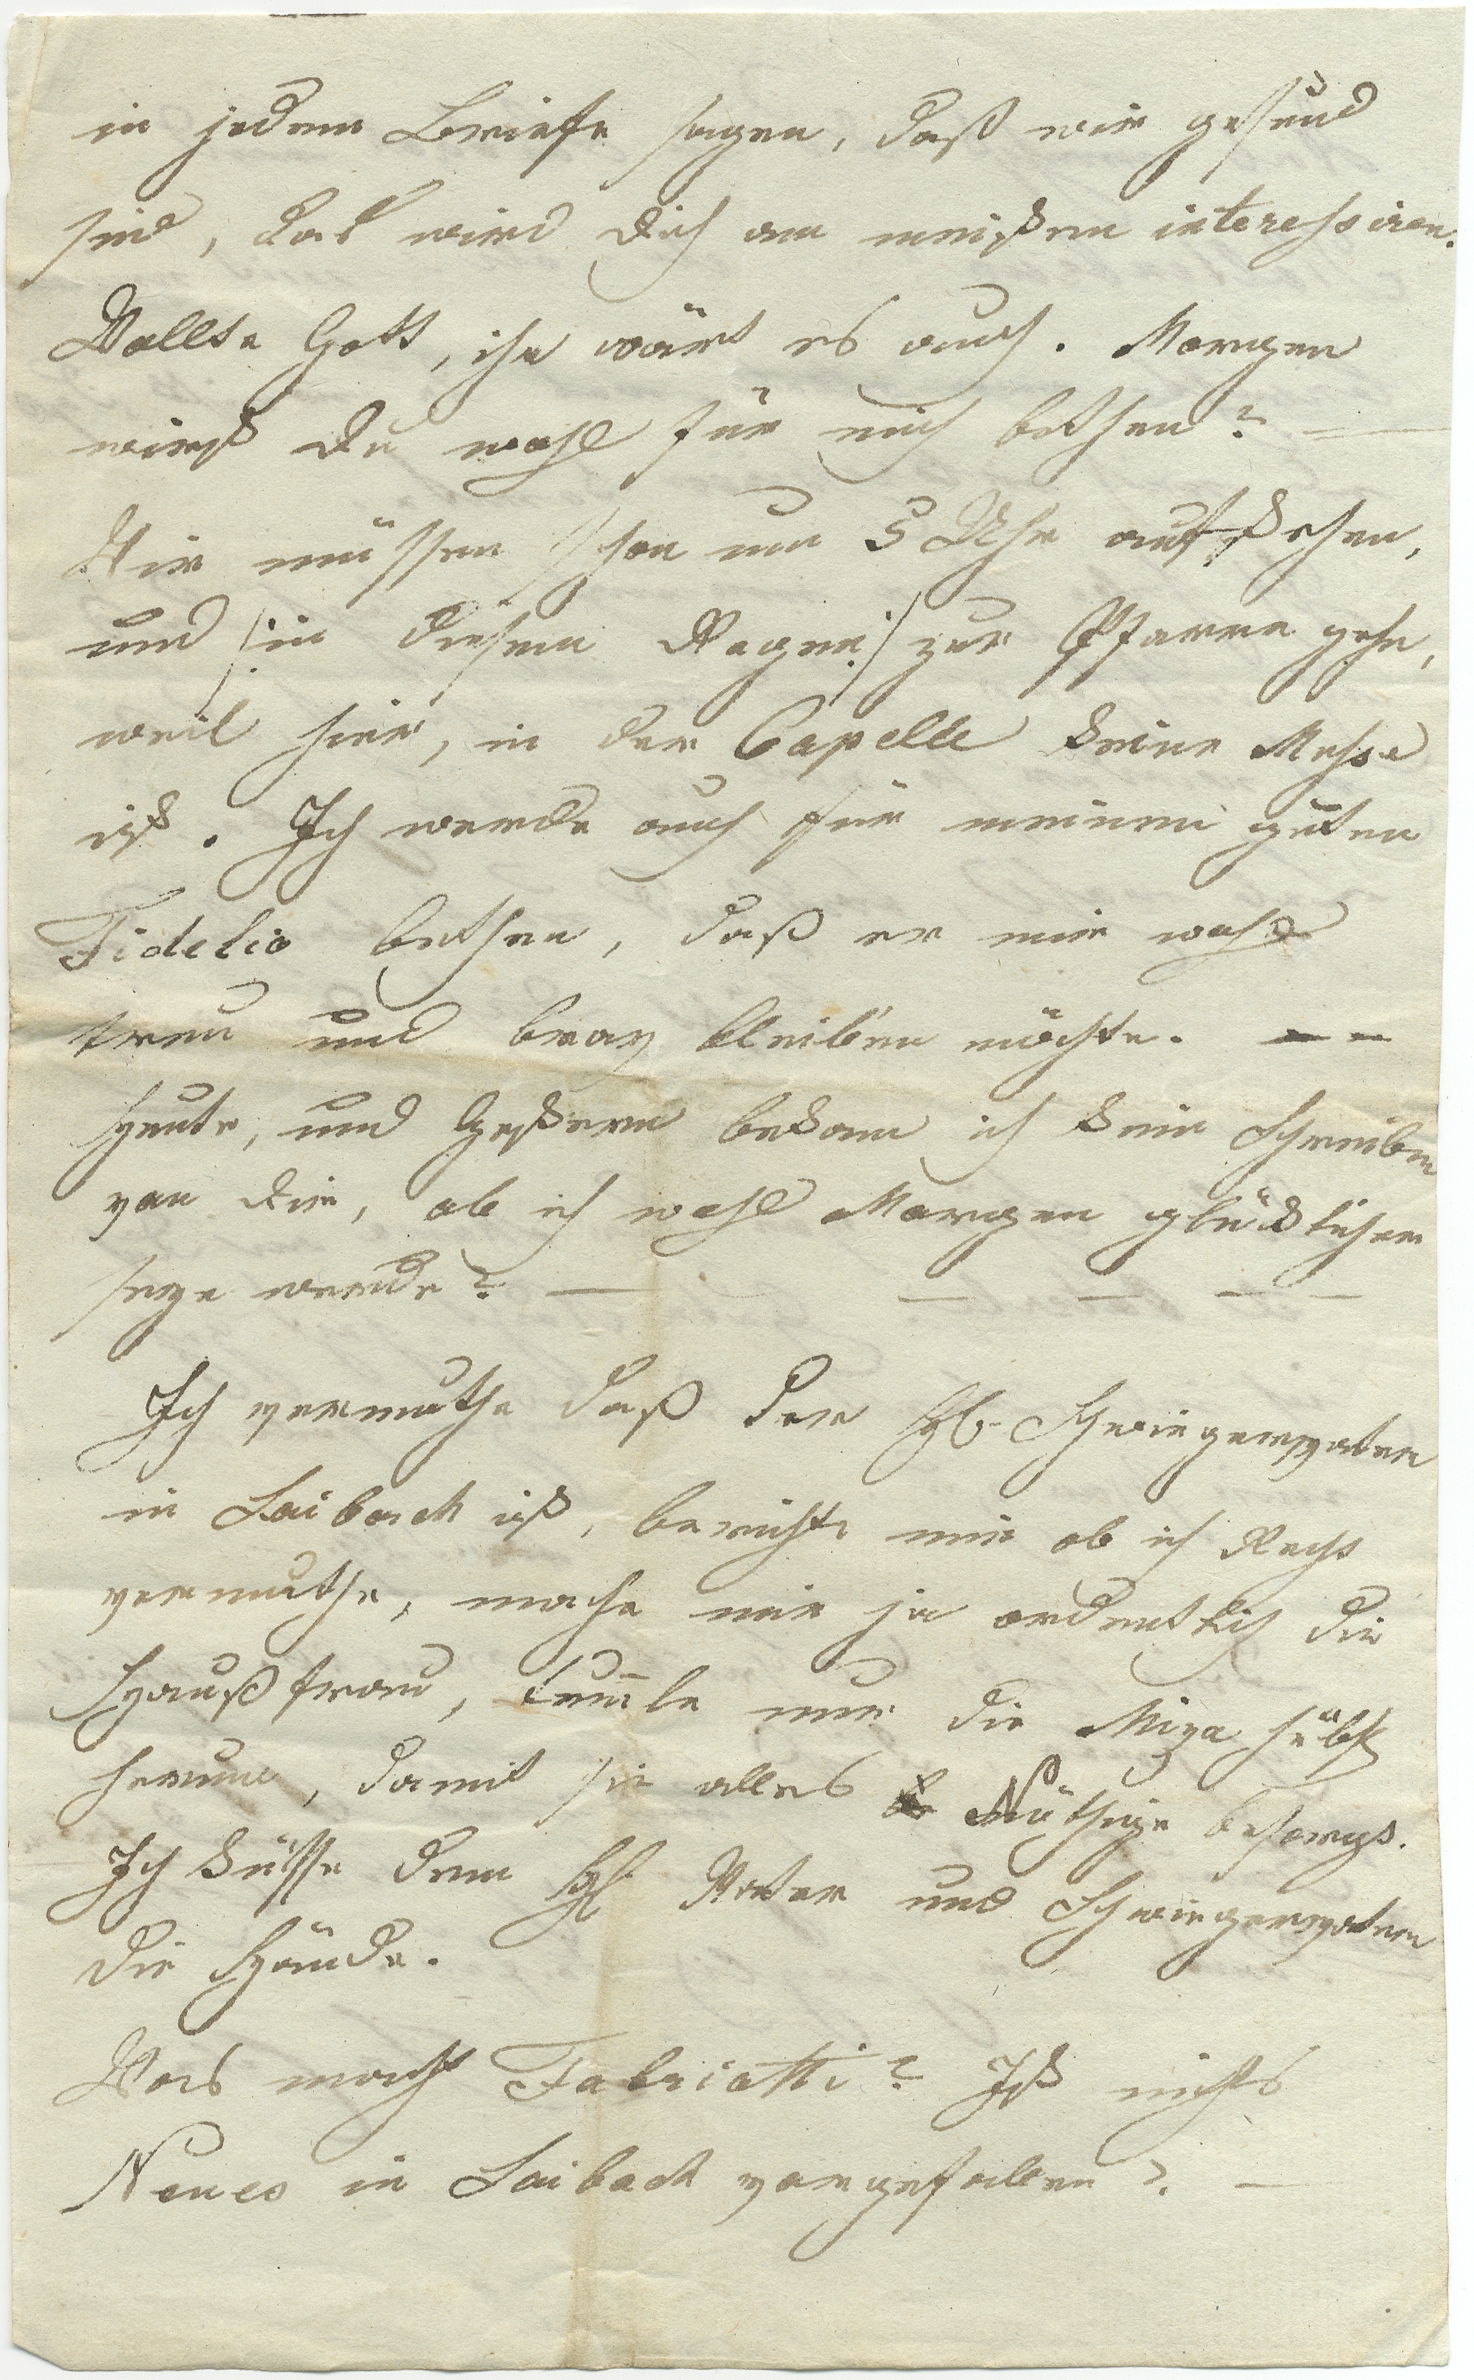 in jedem Briefe sagen, daß wir gesund
sind, das wird dich am meisten interessiren.
Wollte Gott, ihr wärt es auch. Morgen
wirst du wohl für mich bethen? —
Wir müssen schon um 5 Uhr aufstehen,
und /:in diesem Regen:/ zur Pfarre gehn,
weil hier, in der Capelle keine Messe
ist. Ich werde auch für meinen guten
Fidelio bethen, daß er mir wohl
treu und brav bleiben möchte. — —
Heute, und Gestern bekam ich kein Schreiben
von dir, ob ich wohl Morgen glücklicher
seyn werde? — — — — —
Ich vermuthe daß der H: Schwiegervater
in Laibach ist, berichte mir ob ich Recht
vermuthe, mache mir ja ordentlich die
Haußfrau, tum̄le nur die Miza hübsch
herum, damit sie alles Nöthige besorgt.
Ich küsse dem H: Vater und Schwiegervater
die Hände.
Was macht Fabriotti? Ist nichts
Neues in Laibach vorgefallen? —